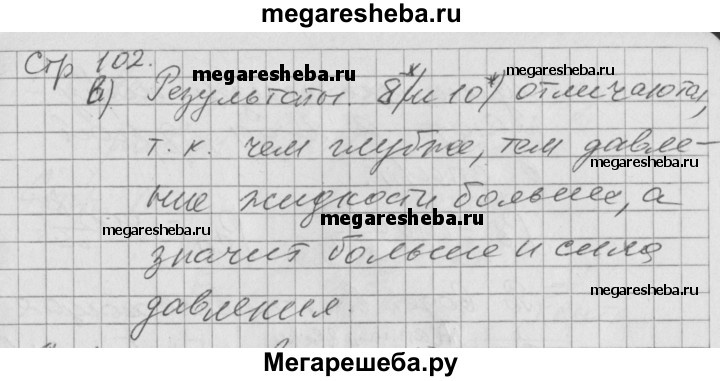 megaresheba.ru
Стр 102.
megaresheba.ru
megaresheba.ru
в) Результаты 8*) и 10*) отличаются,
т. к. чем глубже, тем давле-
megaresheba.ru
ние жидкости больше, а
megaresheba.ru
megaresheba.ru
значит больше и сила
megaresheba.ru
давления.
Мегарешеба.ру